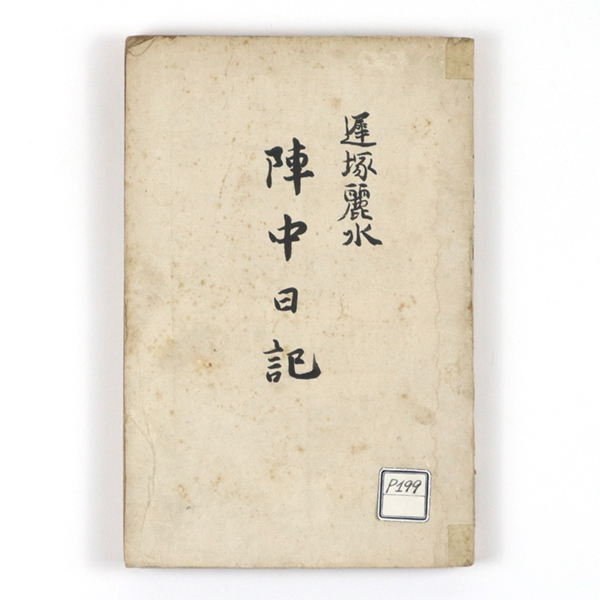 遲塚麗水
陣中日記
P199